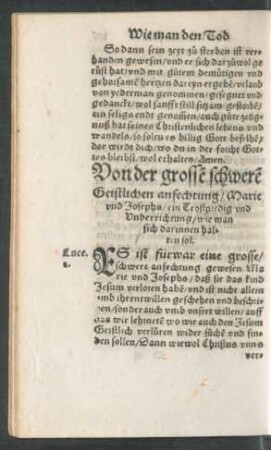 Wie man den Tod
So dann sein zeyt zů sterben ist ver-
handen gewesen/ vnd er sich darzů wol ge
rüst hat/ vnd mit gůtem demütigen vnd
gehorsamē hertzen darein ergebē/ vrlaub
von yederman genommen/ gesegnet vnd
gedanckt/ wol sanfft still seligem gestorbē/
ein seligs endt genomen/ auch gůte zeüg-
nuß hat seines Christenlichen lebens vnd
wandels/ so soltu es billig Gott befelhē/
der wirdt dich/ wo du in der forcht Got-
tes bleibst/ wol erhalten/ Amen.
Von der grossē schwerē
Geistlichen anfechtung/ Marie
vnd Josephs/ ein Trostpredig vnd
Vnderrichtung/ wie man
sich darinnen hal-
ten sol.
Luce.
2.
ES ist fürwar eine grosse/
schwere anfechtung gewesen Ma
rie vnd Josephs/ daß sie das kind
Jesum verloren habē/ vnd ist nicht allein
umb ihrentwillen geschehen vnd beschri-
ben/ sonder auch vmb vnsert willen/ auff
das wir lehrnetē wo wir auch den Jesum
Geistlich verlüren wider sůchē vnd fin-
den sollen/ Dann wiewol Christus vnns
ver-